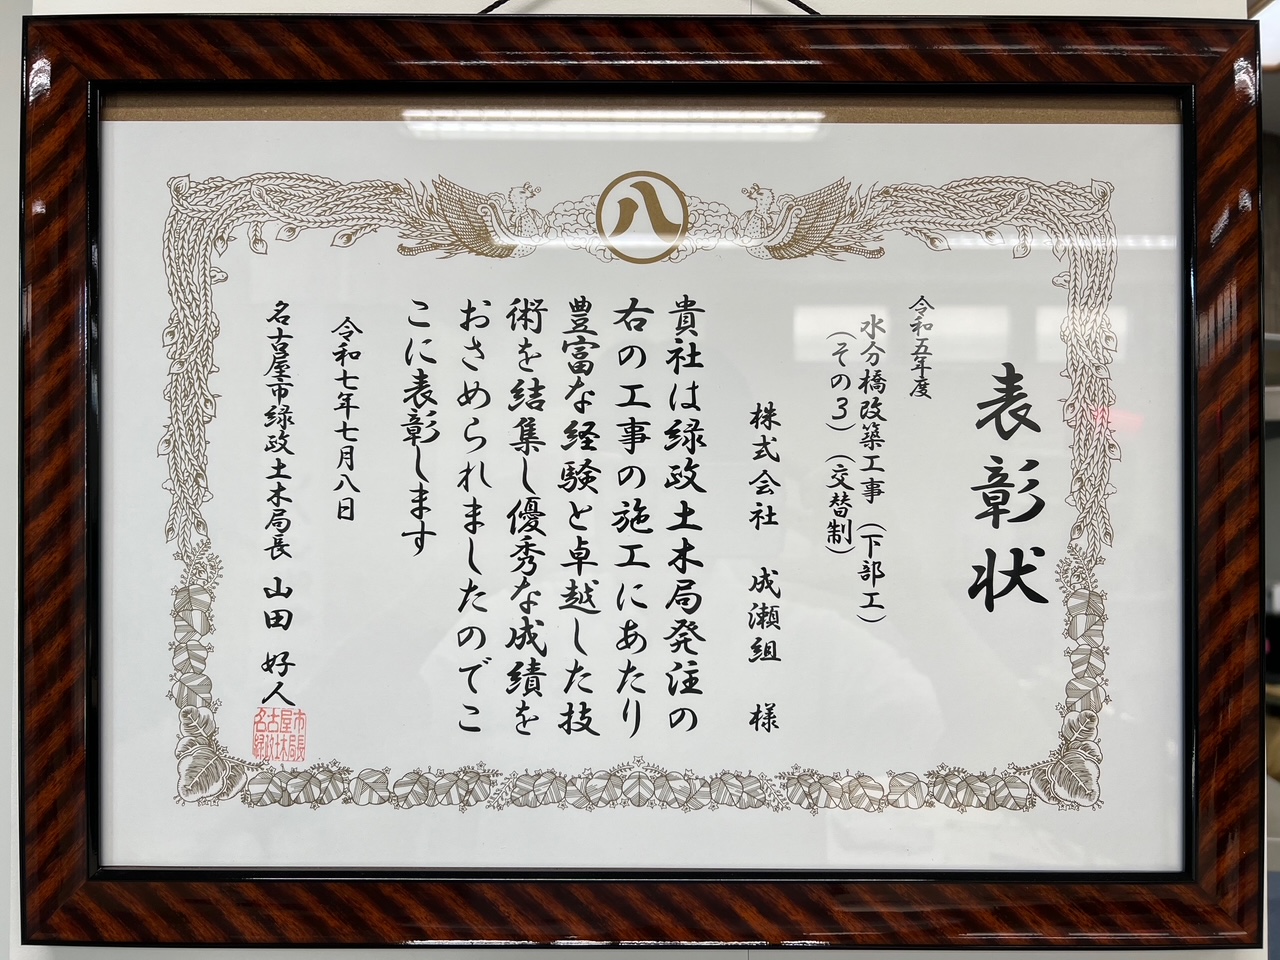 八
表彰状
令和五年度
水分橋改築工事（下部工）
（その３）（交替制）
株式会社 成瀬組 様
貴社は緑政土木局発注の
右の工事の施工にあたり
豊富な経験と卓越した技
術を結集し優秀な成績を
おさめられましたのでこ
こに表彰します
令和七年七月八日
名古屋市緑政土木局長 山田 好人
名古屋市
緑政土木局長